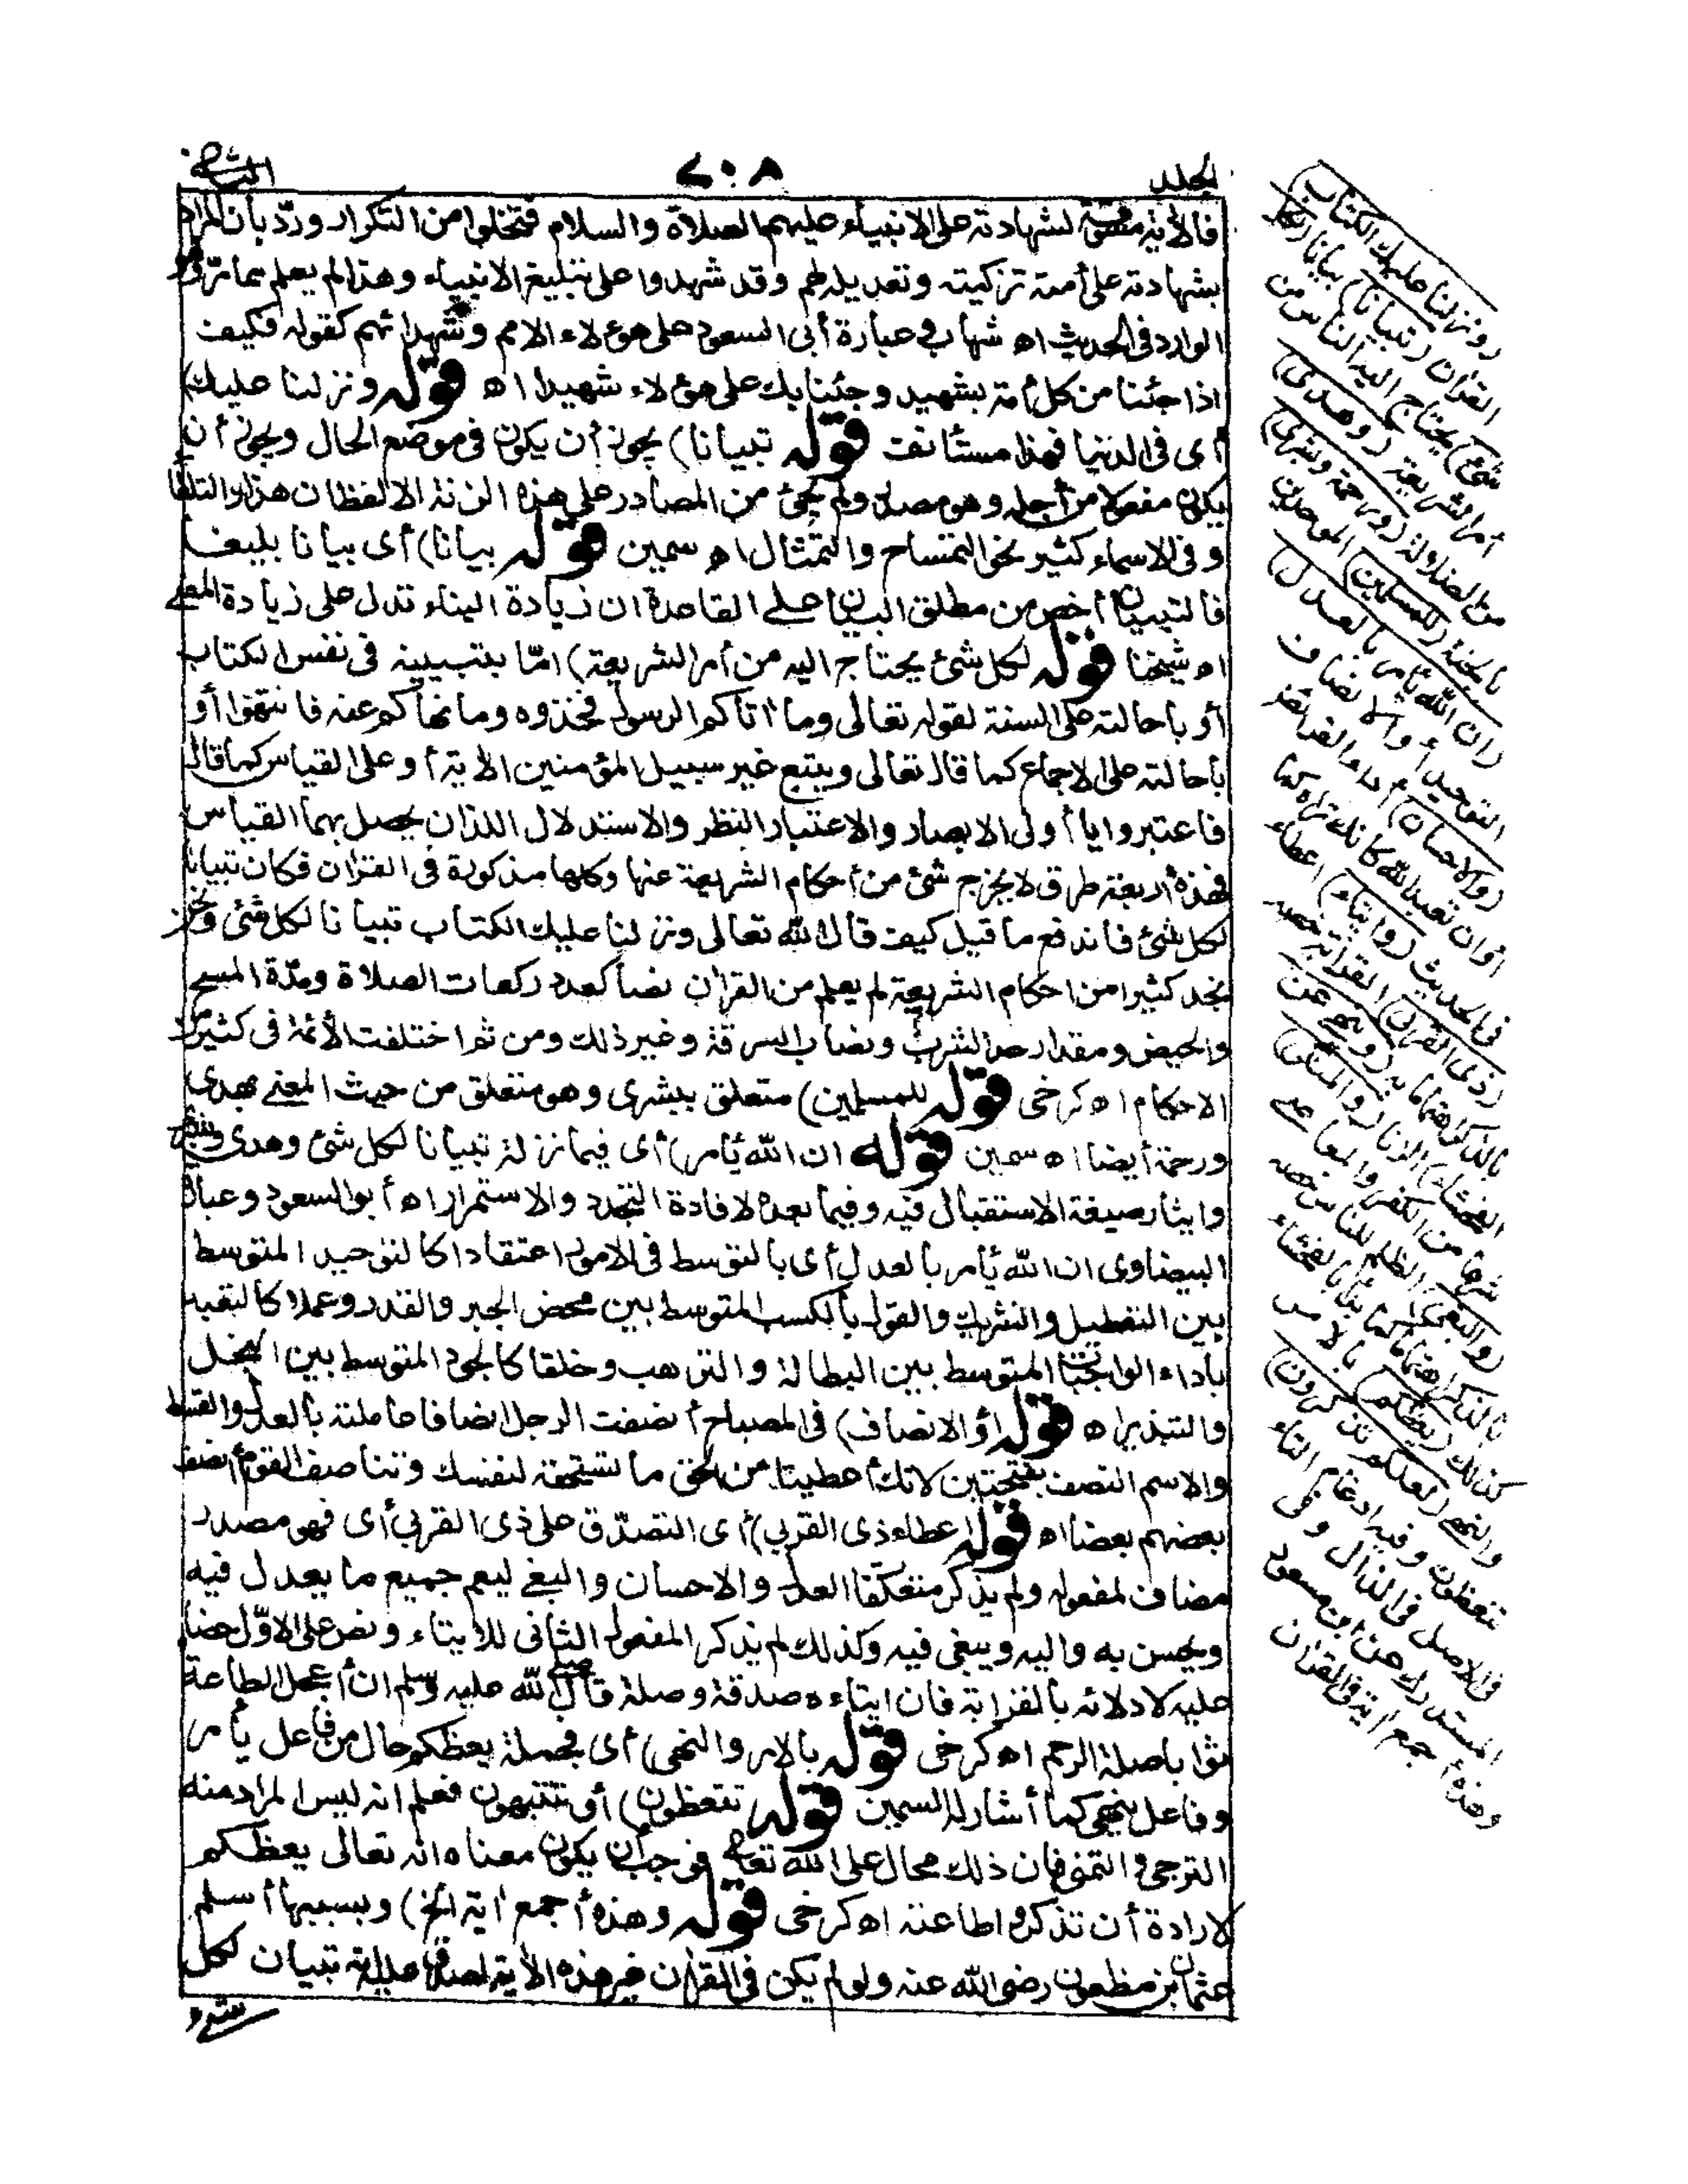 الجلد
٧٠٨
الثانى
فالآية مسوقة لشهادته على الانبياء عليهم الصلاة والسلام فتخلوا من التكرار وردّ بأن المراد
بشهادته على أمته تزكيته وتعديله لهم وقد شهدوا على تبليغ الانبياء وهذا لم يعلم مما مرّ وهو
الوارد فى الحديث اه شهاب وفى عبارة أبى السعود على هؤلاء الامم وشهدائهم كقوله فكيف
اذا جئنا من كل أمة بشهيد وجئنا بك على هؤلاء شهيدا اه قوله ونزلنا عليك)
أى فى الدنيا فهذا مستأنف قوله تبيانا) يجوز أن يكون فى موضع الحال ويجوز أن
يكون مفعولا من أجله وهو مصدر ولم يجئ من المصادر على هذه الزنة الا لفظان هذا والتلقاء
وفى الاسماء كثير نحو التمساح والتمثال اه سمين قوله بيانا) أى بيانا بليغا
فالتبيان أخص من مطلق البيان على القاعدة ان زيادة البناء تدل على زيادة المعنى
اه شيخنا قوله لكل شئ يحتاج اليه من أمر الشريعة) امّا بتبيينه فى نفس الكتاب
أو باحالته على السنة لقوله تعالى وما آتاكم الرسول فخذوه وما نهاكم عنه فانتهوا أو
باحالته على الاجماع كما قال تعالى ويتبع غير سبيل المؤمنين الآية أو على القياس كما قال
فاعتبروا يا أولى الابصار والاعتبار النظر والاستدلال اللذان يحصل بهما القياس
فهذه أربعة طرق لا يخرج شئ من أحكام الشريعة عنها وكلها مذكورة فى القرآن فكان تبيانا
لكل شئ فاندفع ما قيل كيف قال الله تعالى ونزلنا عليك الكتاب تبيانا لكل شئ ونحن
نجد كثيرا من احكام الشريعة لم يعلم من القرآن نصا كعدد ركعات الصلاة ومدّة المسح
والحيض ومقدار حد الشرب ونصاب السرقة وغير ذلك ومن ثم اختلفت الأئمة فى كثير من
الاحكام اه كرخى قوله للمسلمين) متعلق ببشرى وهو متعلق من حيث المعنى بهدى
ورحمة أيضا اه سمين قوله ان الله يأمر) أى فيما نزله تبيانا لكل شئ وهدى وبشرى
وايثار صيغة الاستقبال فيه وفيما بعده لافادة التجدد والاستمرار اه أبو السعود وعبارة
البيضاوى ان الله يأمر بالعدل أى بالتوسط فى الامور اعتقادا كالتوحيد المتوسط
بين التعطيل والتشريك والقول بالكسب المتوسط بين محض الجبر والقدر وعملا كالتعبد
بأداء الواجبات المتوسط بين البطالة والترهب وخلقا كالجود المتوسط بين البخل
والتبذير اه قوله أو الانصاف) فى المصباح أنصفت الرجل انصافا عاملته بالعدل والقسط
والاسم النصف بفتحتين لانك أعطيته من الحق ما تستحقه لنفسك وتناصف القوم أنصف
بعضهم بعضا اه قوله اعطاء ذى القربى) أى التصدّق على ذى القربى أى فهو مصدر
مضاف لمفعوله ولم يذكر متعلقا العدل والاحسان والبغى ليعم جميع ما يعدل فيه
ويحسن به واليه ويبغى فيه وكذلك لم يذكر المفعول الثانى للايتاء ونص على الاوّل حضا
عليه لادلائه بالقرابة فان ايتاءه صدقة وصلة قال صلى الله عليه وسلم ان أعجل الطاعة
ثوابا صلة الرحم اه كرخى قوله بالامر والنهى) أى فجملة يعظكم حال من فاعل يأمر
وفاعل ينهى كما أشار له السمين قوله تتعظون) أى تنتبهون فعلم انه ليس المراد منه
الترجى والتمنى فان ذلك محال على الله تعالى فوجب أن يكون معناه انه تعالى يعظكم
لارادة أن تذكروا طاعته اه كرخى قوله وهذه أجمع آية الخ) وبسببها أسلم
عثمان بن مظعون رضى الله عنه ولو لم يكن فى القرآن غير هذه الآية لصدق عليه انه تبيان لكل
شئ
(ونزلنا عليك الكتاب)
القرآن (تبيانا) بيانا (لكل
شئ) يحتاج اليه الناس من
أمر الشريعة (وهدى)
من الضلالة (ورحمة وبشرى)
بالجنة (للمسلمين) الموحدين
(ان الله يأمر بالعدل)
التوحيد أو الانصاف
(والاحسان) أداء الفرائض
أو أن تعبد الله كأنك تراه كما
فى الحديث (وايتاء) اعطاء
(ذى القربى) القرابة خصه
بالذكر اهتماما به (وينهى عن
الفحشاء) الزنا (والمنكر)
شرعا من الكفر والمعاصى
(والبغى) الظلم للناس خصه
بالذكر اهتماما كما بدأ بالفحشاء
كذلك (يعظكم) بالامر
والنهى (لعلكم تذكرون)
تتعظون وفيه ادغام التاء
فى الاصل فى الذال وفى
المستدرك عن ابن مسعود
وهذه أجمع آية فى القرآن